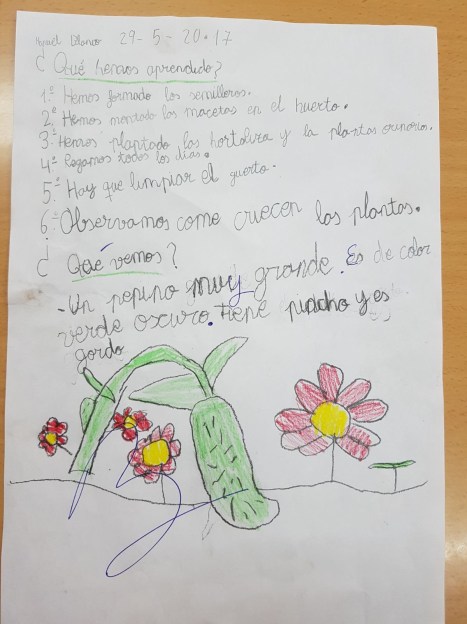 Manuel Blanco 29-5-20.17
¿Qué hemos aprendido?
1.º Hemos formado los semilleros.
2.º Hemos montado las macetas en el huerto.
3.º Hemos plantado las hortaliza y la plantas
4.º Regamos todos los días.
5.º Hay que lumpiar el guerto.
6.º Observamos come crecen las plantas.
¿Qué vemos?
-Un pepino muy grande. Es de color
verde oscuro. tiene pincho y es
gordo